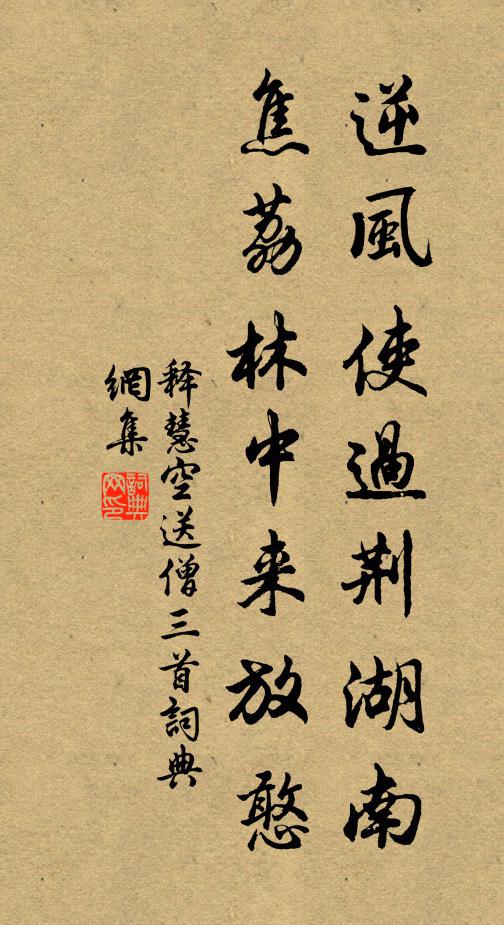 逆風使過荆湖南
焦荔林中来放憨
释慧空送僧三首詞典
網集
詞典
网印